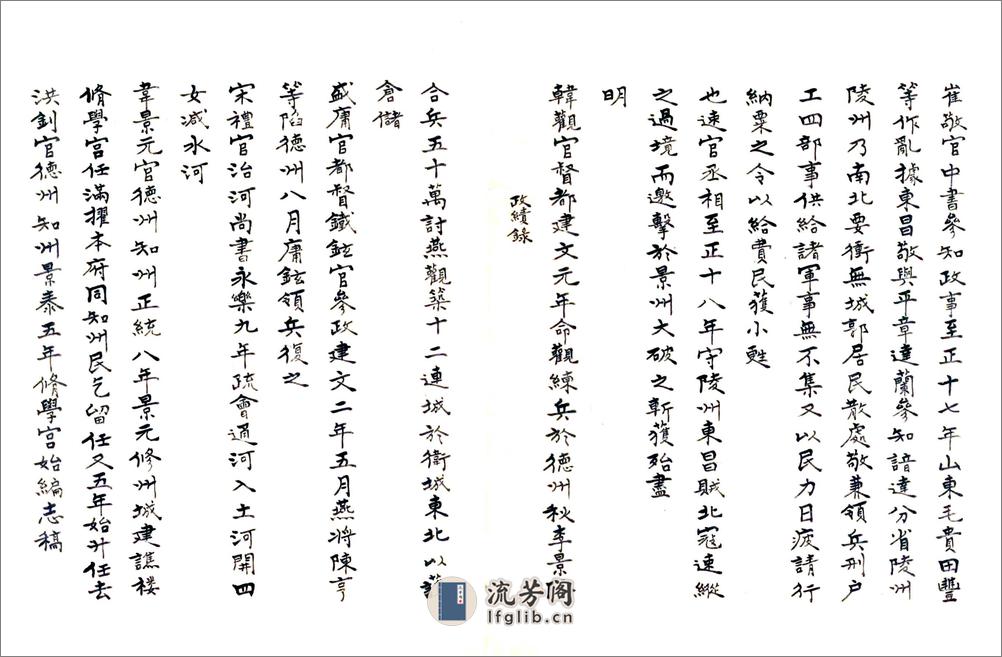 崔敬官中書參知政事至正十七年山東毛貴田豐
等作亂據東昌敬與平章達蘭參知諳達分省陵州
陵州乃南北要衝無城郭居民散處敬兼領兵刑户
工四部事供給諸軍事無不集又以民力日疲請行
納粟之令以給費民獲小甦
也速官丞相至正十八年守陵州東昌賊北寇速縱
之過境而邀擊於景州大破之斬獲殆盡
明
韓觀官督都建文元年命觀練兵於德州秋李景
政績錄
合兵五十萬討燕觀築十二連城於衛城東北以
倉儲
盛庸官都督鐵鉉官參政建文二年五月燕將陳亨
等陷德州八月庸鉉領兵復之
宋禮官治河尚書永樂九年疏會通河入土河開四
女減水河
韋景元官德州知州正統八年景元修州城建譙楼
脩學宫任滿擢本府同知州民乞留任又五年始升任去
洪釗官德州知州景泰五年脩學宫始編志稿
流芳阁
lfglib.cn